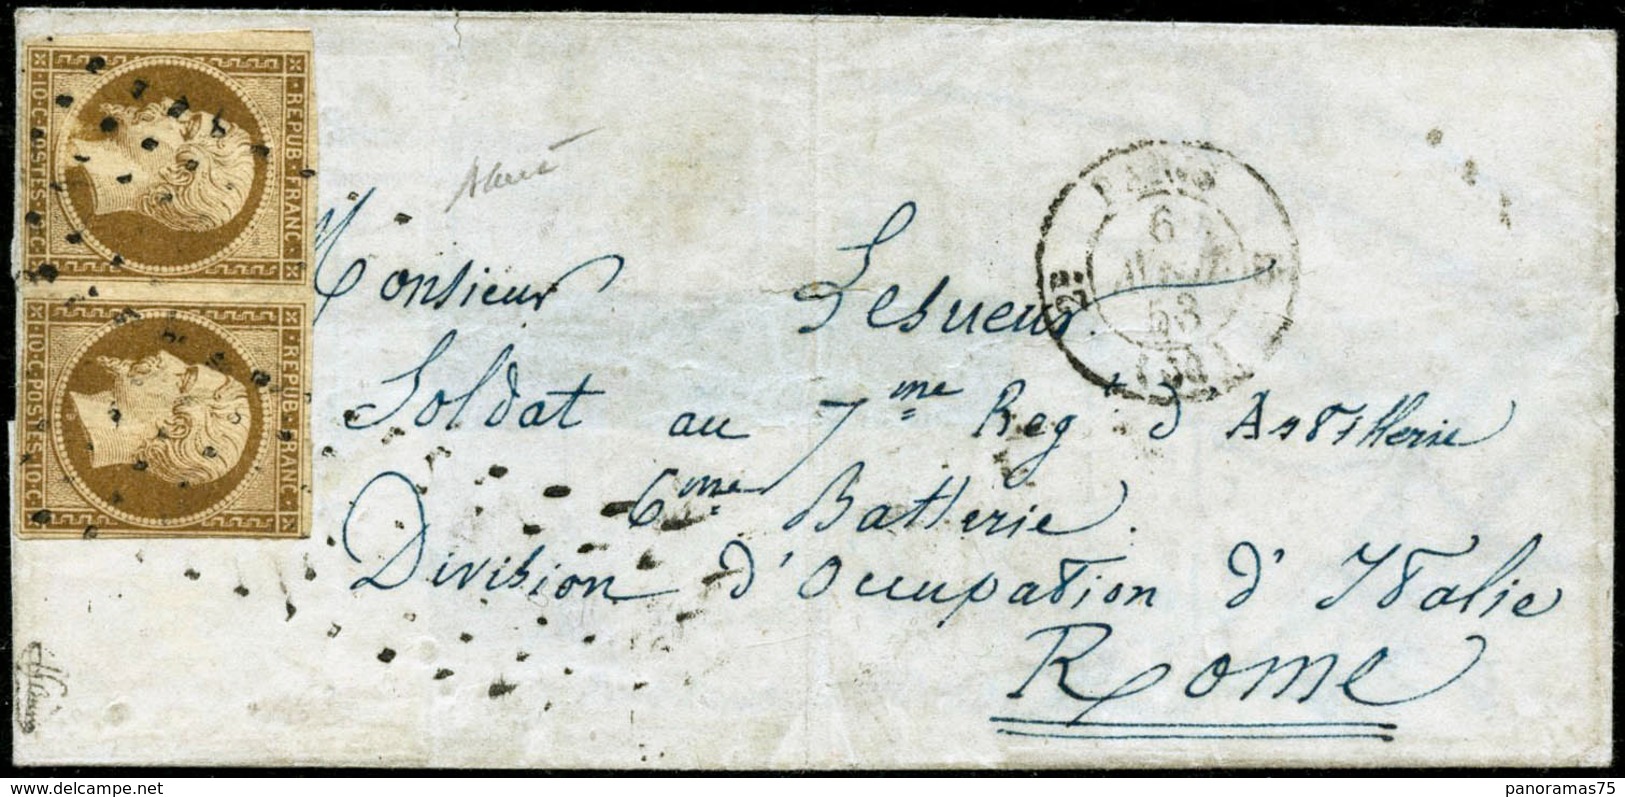 REPUB·FRANC·
·10·C·POSTES·10·C·
REPUB·FRANC·
·10·C·POSTES·10·C·
PARIS
6
53
(60)
Monsieur Lesueur
Soldat au 7me Regt d'Artillerie
6me Batterie.
Division d'Occupation d'Italie
Rome
panoramas75